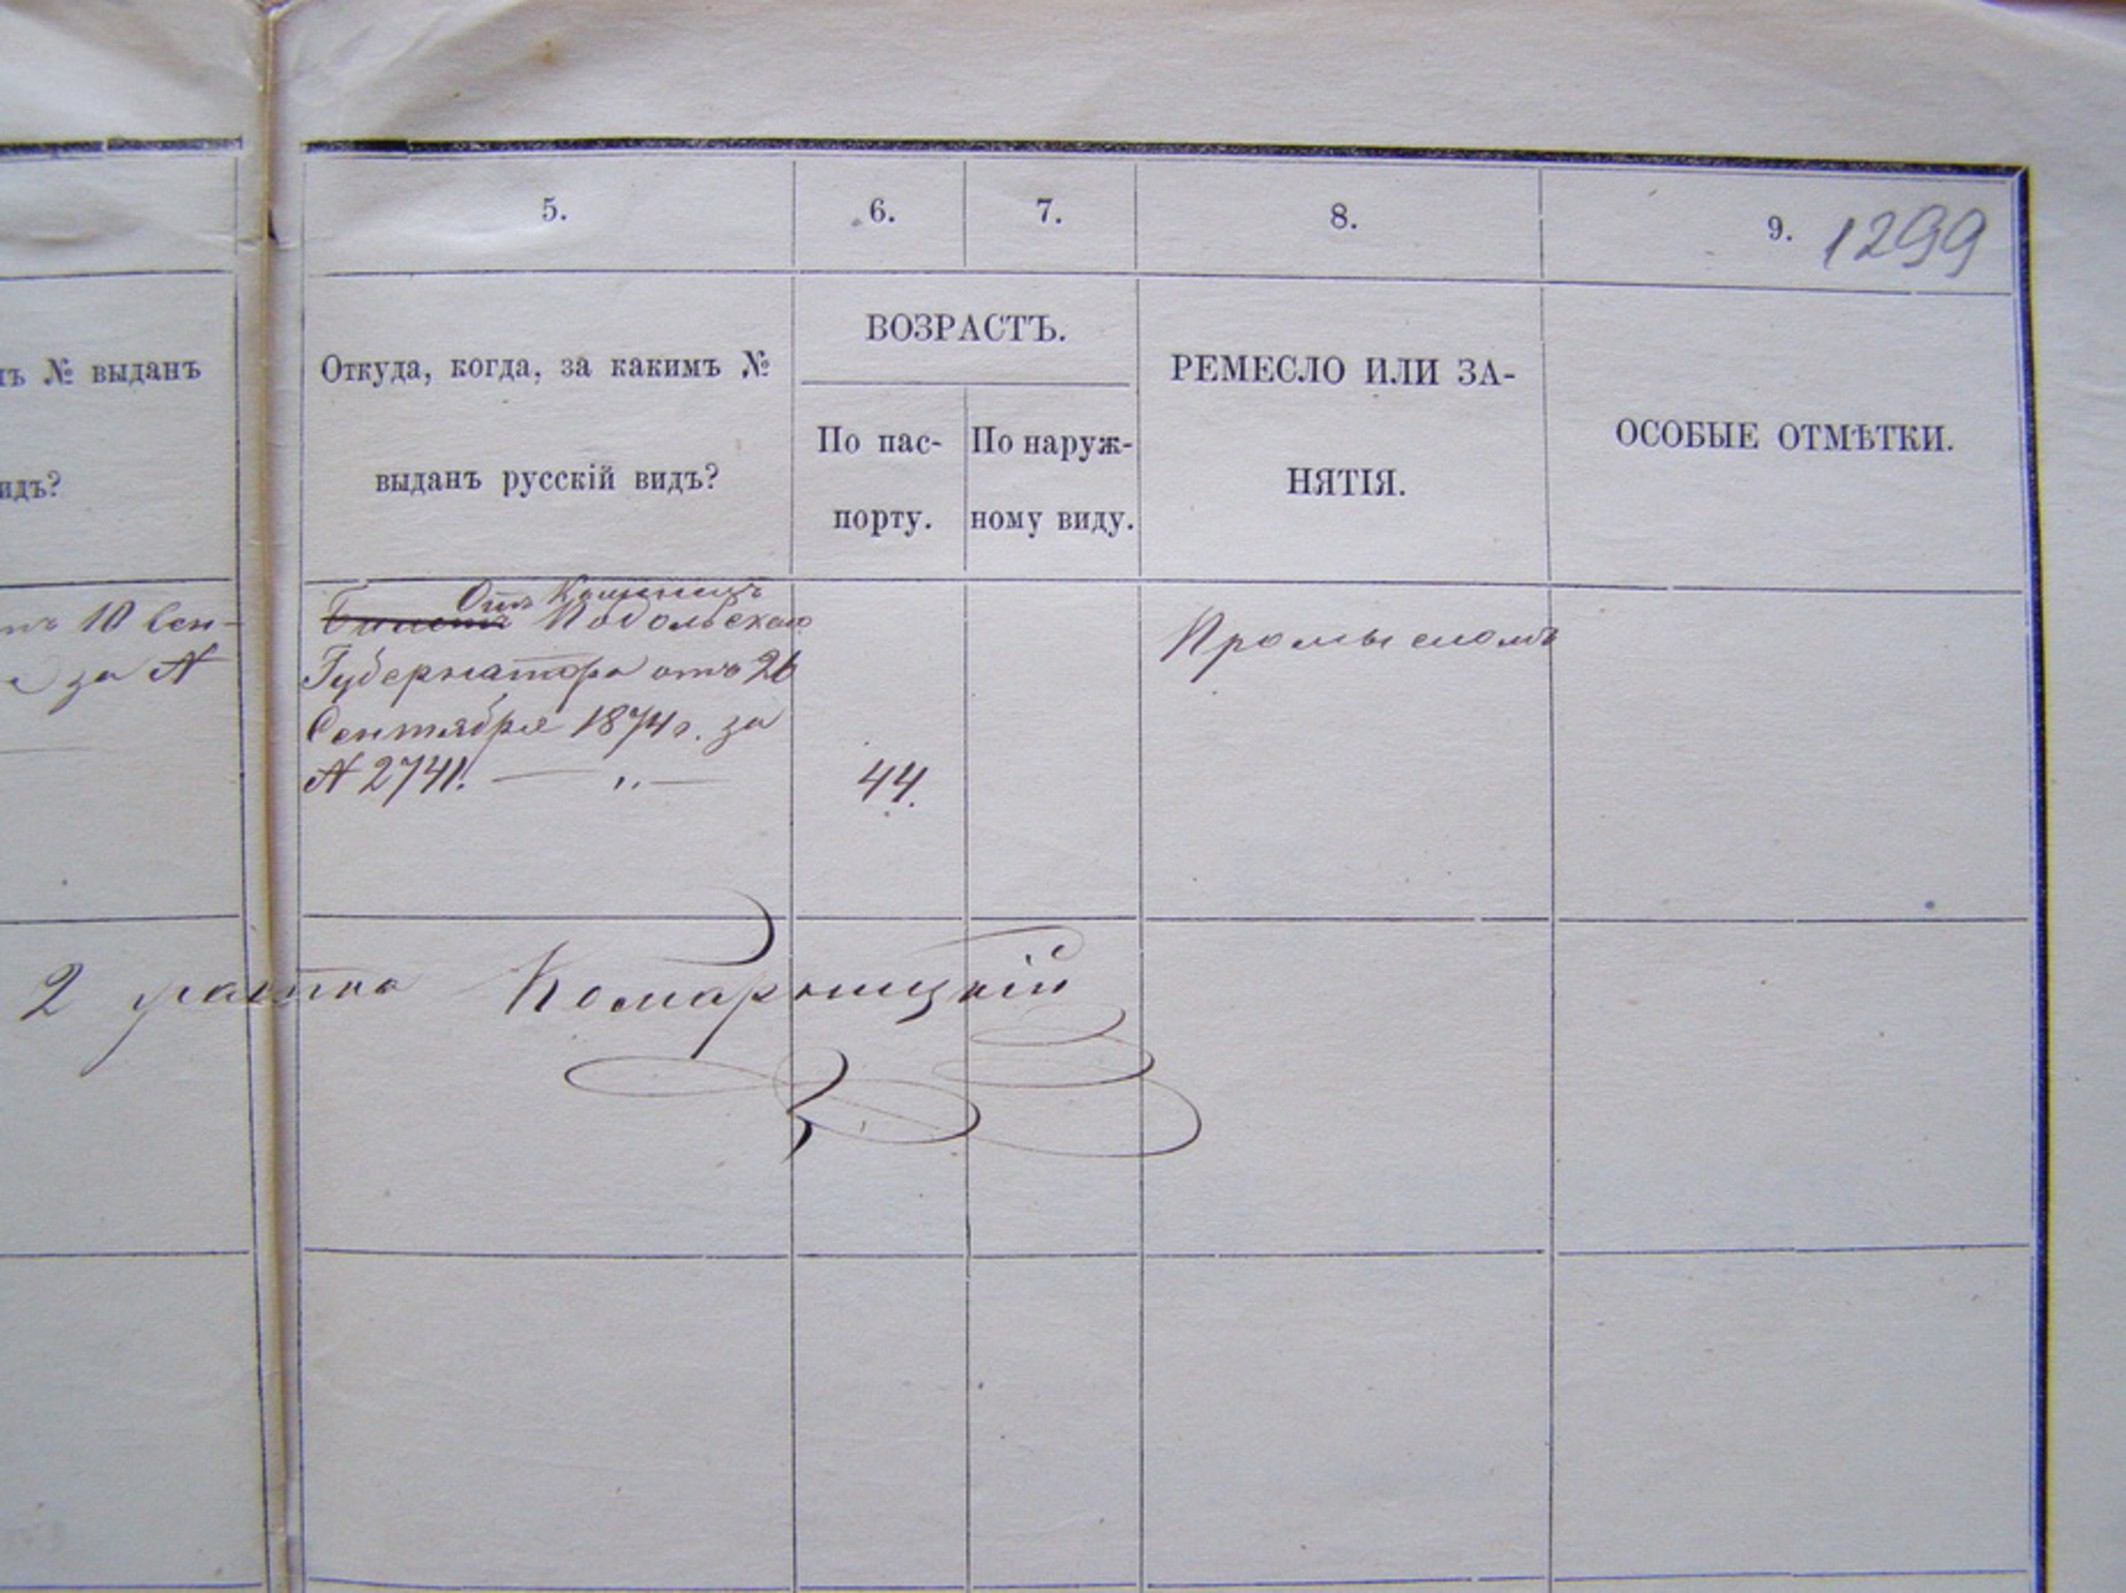 5.
6.
7.
8.
9.
1299
ъ № выданъ
идъ?
Откуда, когда, за какимъ №
выданъ русскій видъ?
ВОЗРАСТЪ.
По пас-
порту.
По наруж-
ному виду.
РЕМЕСЛО ИЛИ ЗА-
НЯТІЯ.
ОСОБЫЕ ОТМѢТКИ.
10 Сен-
за №
Отъ
Билетъ Подольскаго
Губернатора отъ 26
Сентября 1874 г. за
№ 2741.
44.
Промысломъ
2 участка Комарницкій